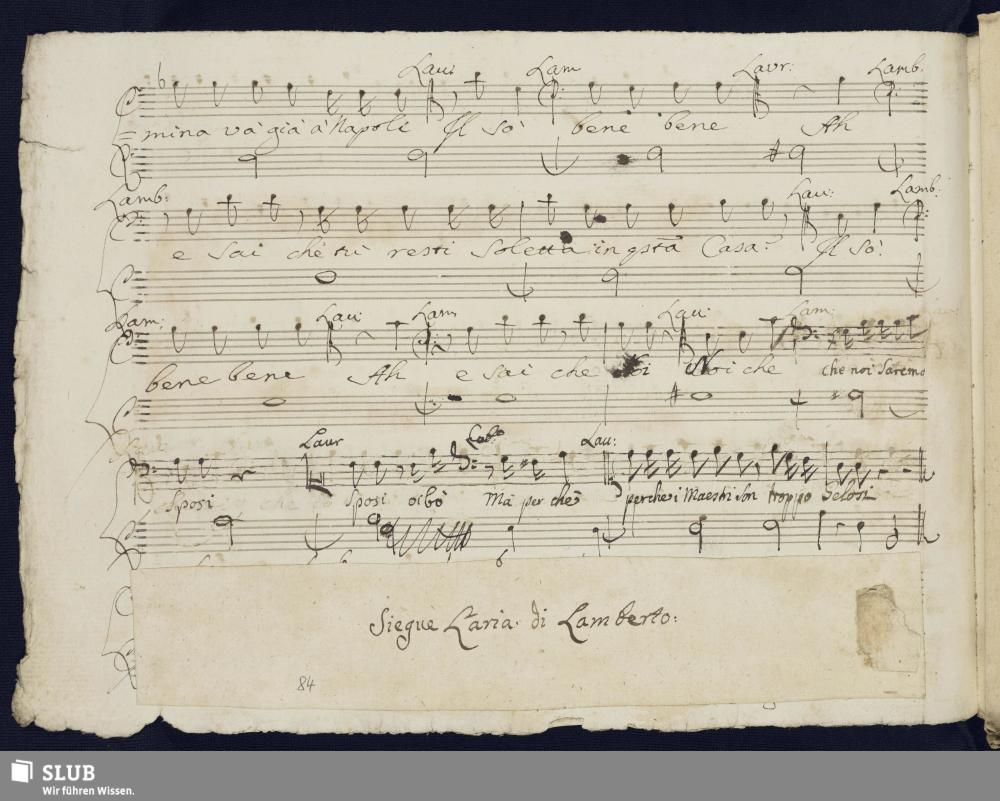 Lau: Lam Laur: Lamb:
mina và già à Napoli Il sò bene bene Ah
Lamb: Lau: Lamb:
e sai che tù resti soletta in qstà Casa? Il sò:
Lam: Lau: Lam Lau: Lam:
bene bene Ah e sai che Noi che che noi saremo
Laur Lau:
Sposi Sposi oibò Mà perchè perche i Maestri son troppo Gelosi
6 6
Siegue L'aria di Lamberto:
84
SLUB
Wir führen Wissen.